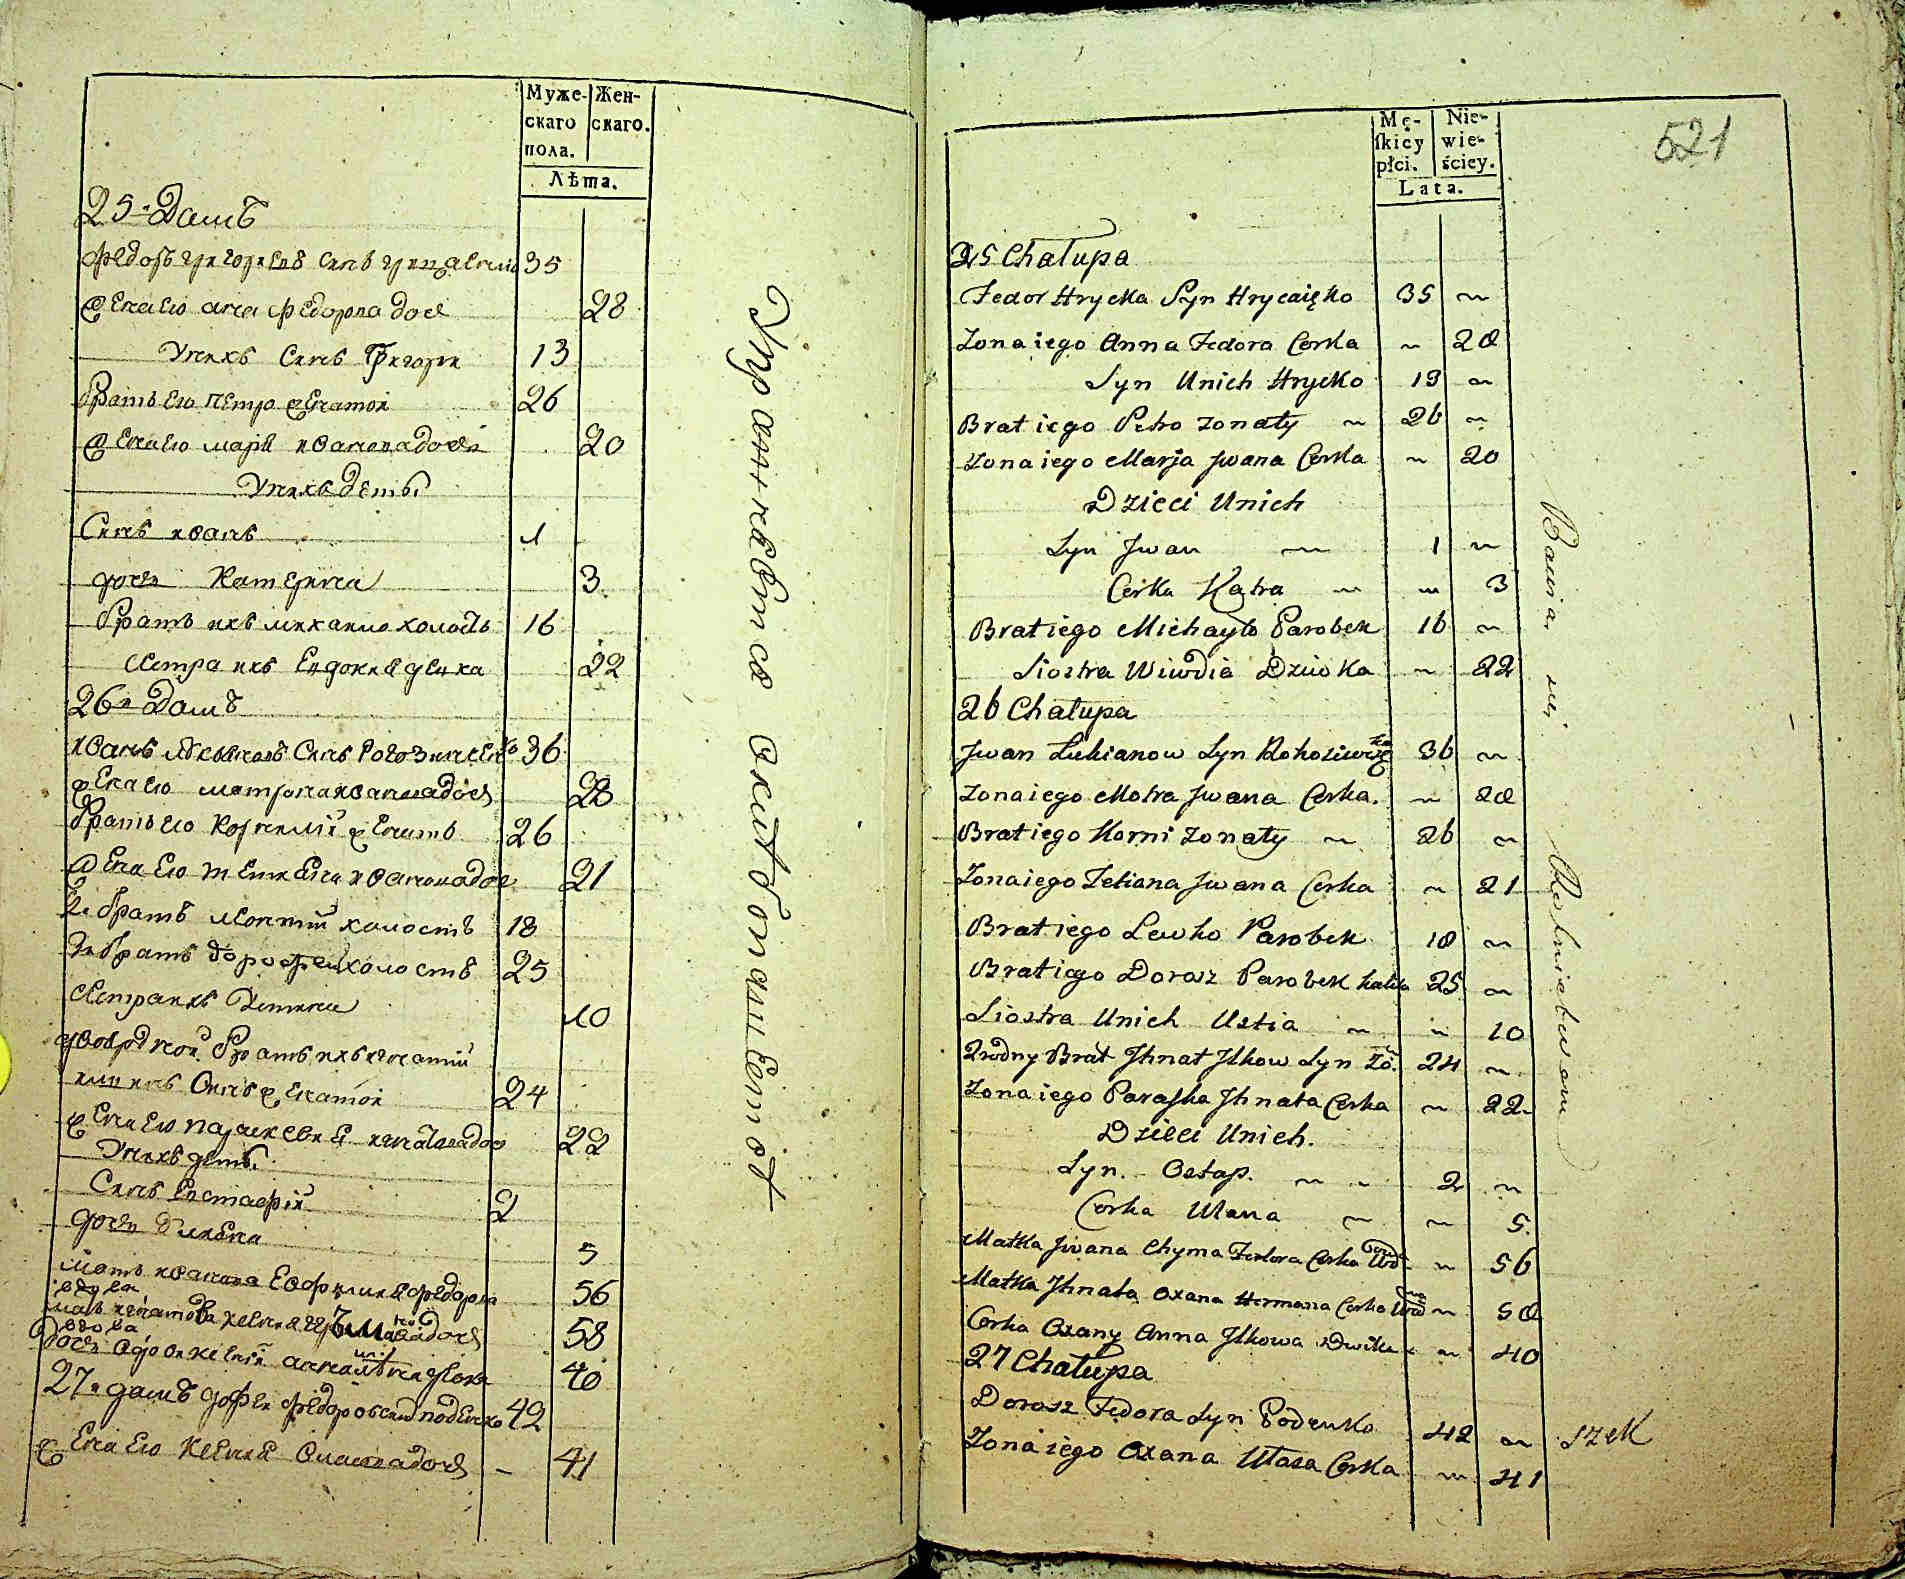 Муже-
скаго
пола.
Жен-
скаго.
Лѣта.
25 Домъ
Федоръ Григориевъ Синъ 35
Жена Ею Анна Федорова доч 28
У них Синъ Григори 13
Братъ Ею Петро Женатои 26
Жена Ею Мария Иванова дочь 20
У них дети
Синъ Иванъ 1
дочь Катерина 3
Братъ их Михаило холостъ 16
Сестра их Евдокия девка 22
26 Домъ
Иванъ Синъ 36
Жена Ею Матрона Иванова доч 28
Братъ Ею Корнилий Женатъ 26
Жена Ею Татияна Иванова доч 21
2 братъ Леонтий холостъ 18
3 братъ дорофеи холостъ 25
Сестра их Устина 10
Братъ их Игнатий
Синъ Женатои 24
Жена Ею Параскевия Игнатова доч 22
У них дети
Синъ Евстафий 2
дочь Улияна 5
Мать Иванова Евфимия Федорова
вдова 56
Мать Игнатова Ксения дочь
вдова 58
дочь Анна 40
27 домъ Федоровъ 42
Жена Ею Ксения Власова дочь – 41
Упражняется Хлебопашеством
521
Mę-
skiey
płci.
Nie-
wie-
ściey.
Lata.
25 Chałupa
Fedor Hrycka Syn Hrycaięko 35 ~
Zona iego Anna Fedora Corka ~ 28
Syn Unich Hrycko 13 ~
Brat iego Petro zonaty ~ 26 ~
Zona iego Marja Jwana Corka ~ 20
Dzieci Unich
Syn Jwan ~ 1 ~
Corka Katra ~ ~ 3
Brat iego Michayło Parobek 16 ~
Siostra Wiwdia Dziwka ~ 22
26 Chałupa
Jwan Lukianow Syn 36 ~
Zona iego Motra Jwana Corka. ~ 28
Brat iego Korni zonaty ~ 26 ~
Zona iego Tetiana Jwana Corka ~ 21
Brat iego Lewko Parobek 18 ~
Brat iego Dorosz Parobek kalika 25 ~
Siostra Unich Ustia ~ ~ 10
Brat Jhnat Jlkow Syn Zo. 24 ~
Zona iego Paraska Jhnata Corka ~ 22
Dzieci Unich.
Syn. Ostap. ~ ~ 2 ~
Corka Ulana ~ ~ 5
Matka Jwana Chyma Fedora Corka Wd ~ 56
Matka Jhnata Oxana Hermana Corka Wd ~ 58
Corka Oxany Anna Jlkowa Dziwka ~ 40
27 Chałupa
Dorosz Fedora Syn Podenko 42 ~
Zona iego Oxana Własa Corka ~ 41
Bawia się Rolnictwem
szek